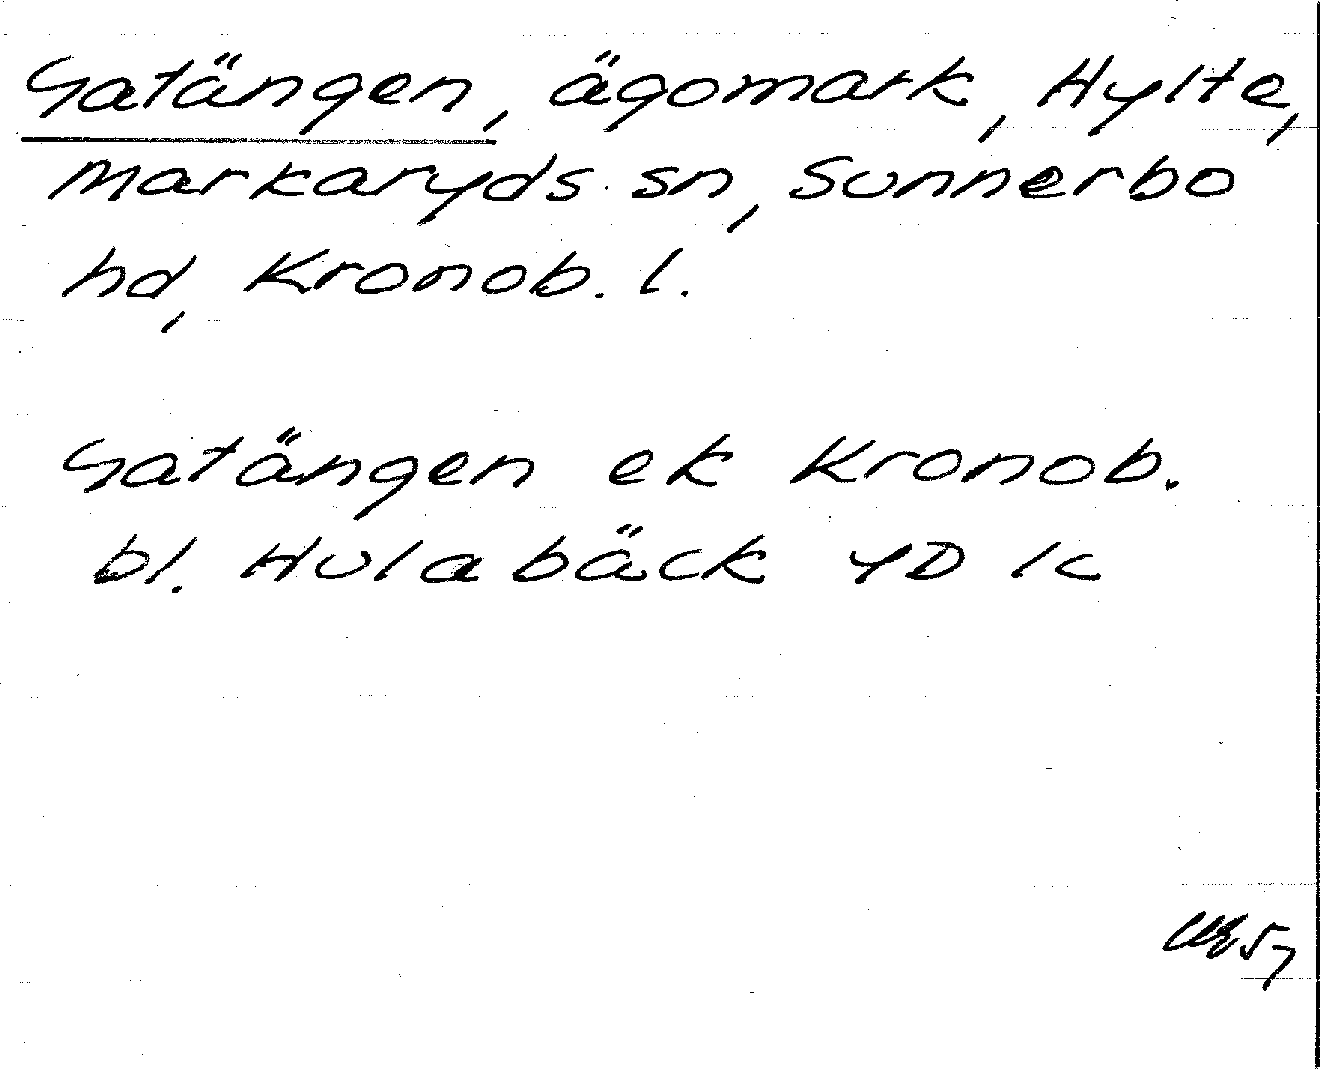 Gatängen, ägomark, Hylte,
Markaryds sn, Sunnerbo
hd, Kronob. l.
Gatängen ek Kronob.
bl. Hulabäck 4D 1c
57